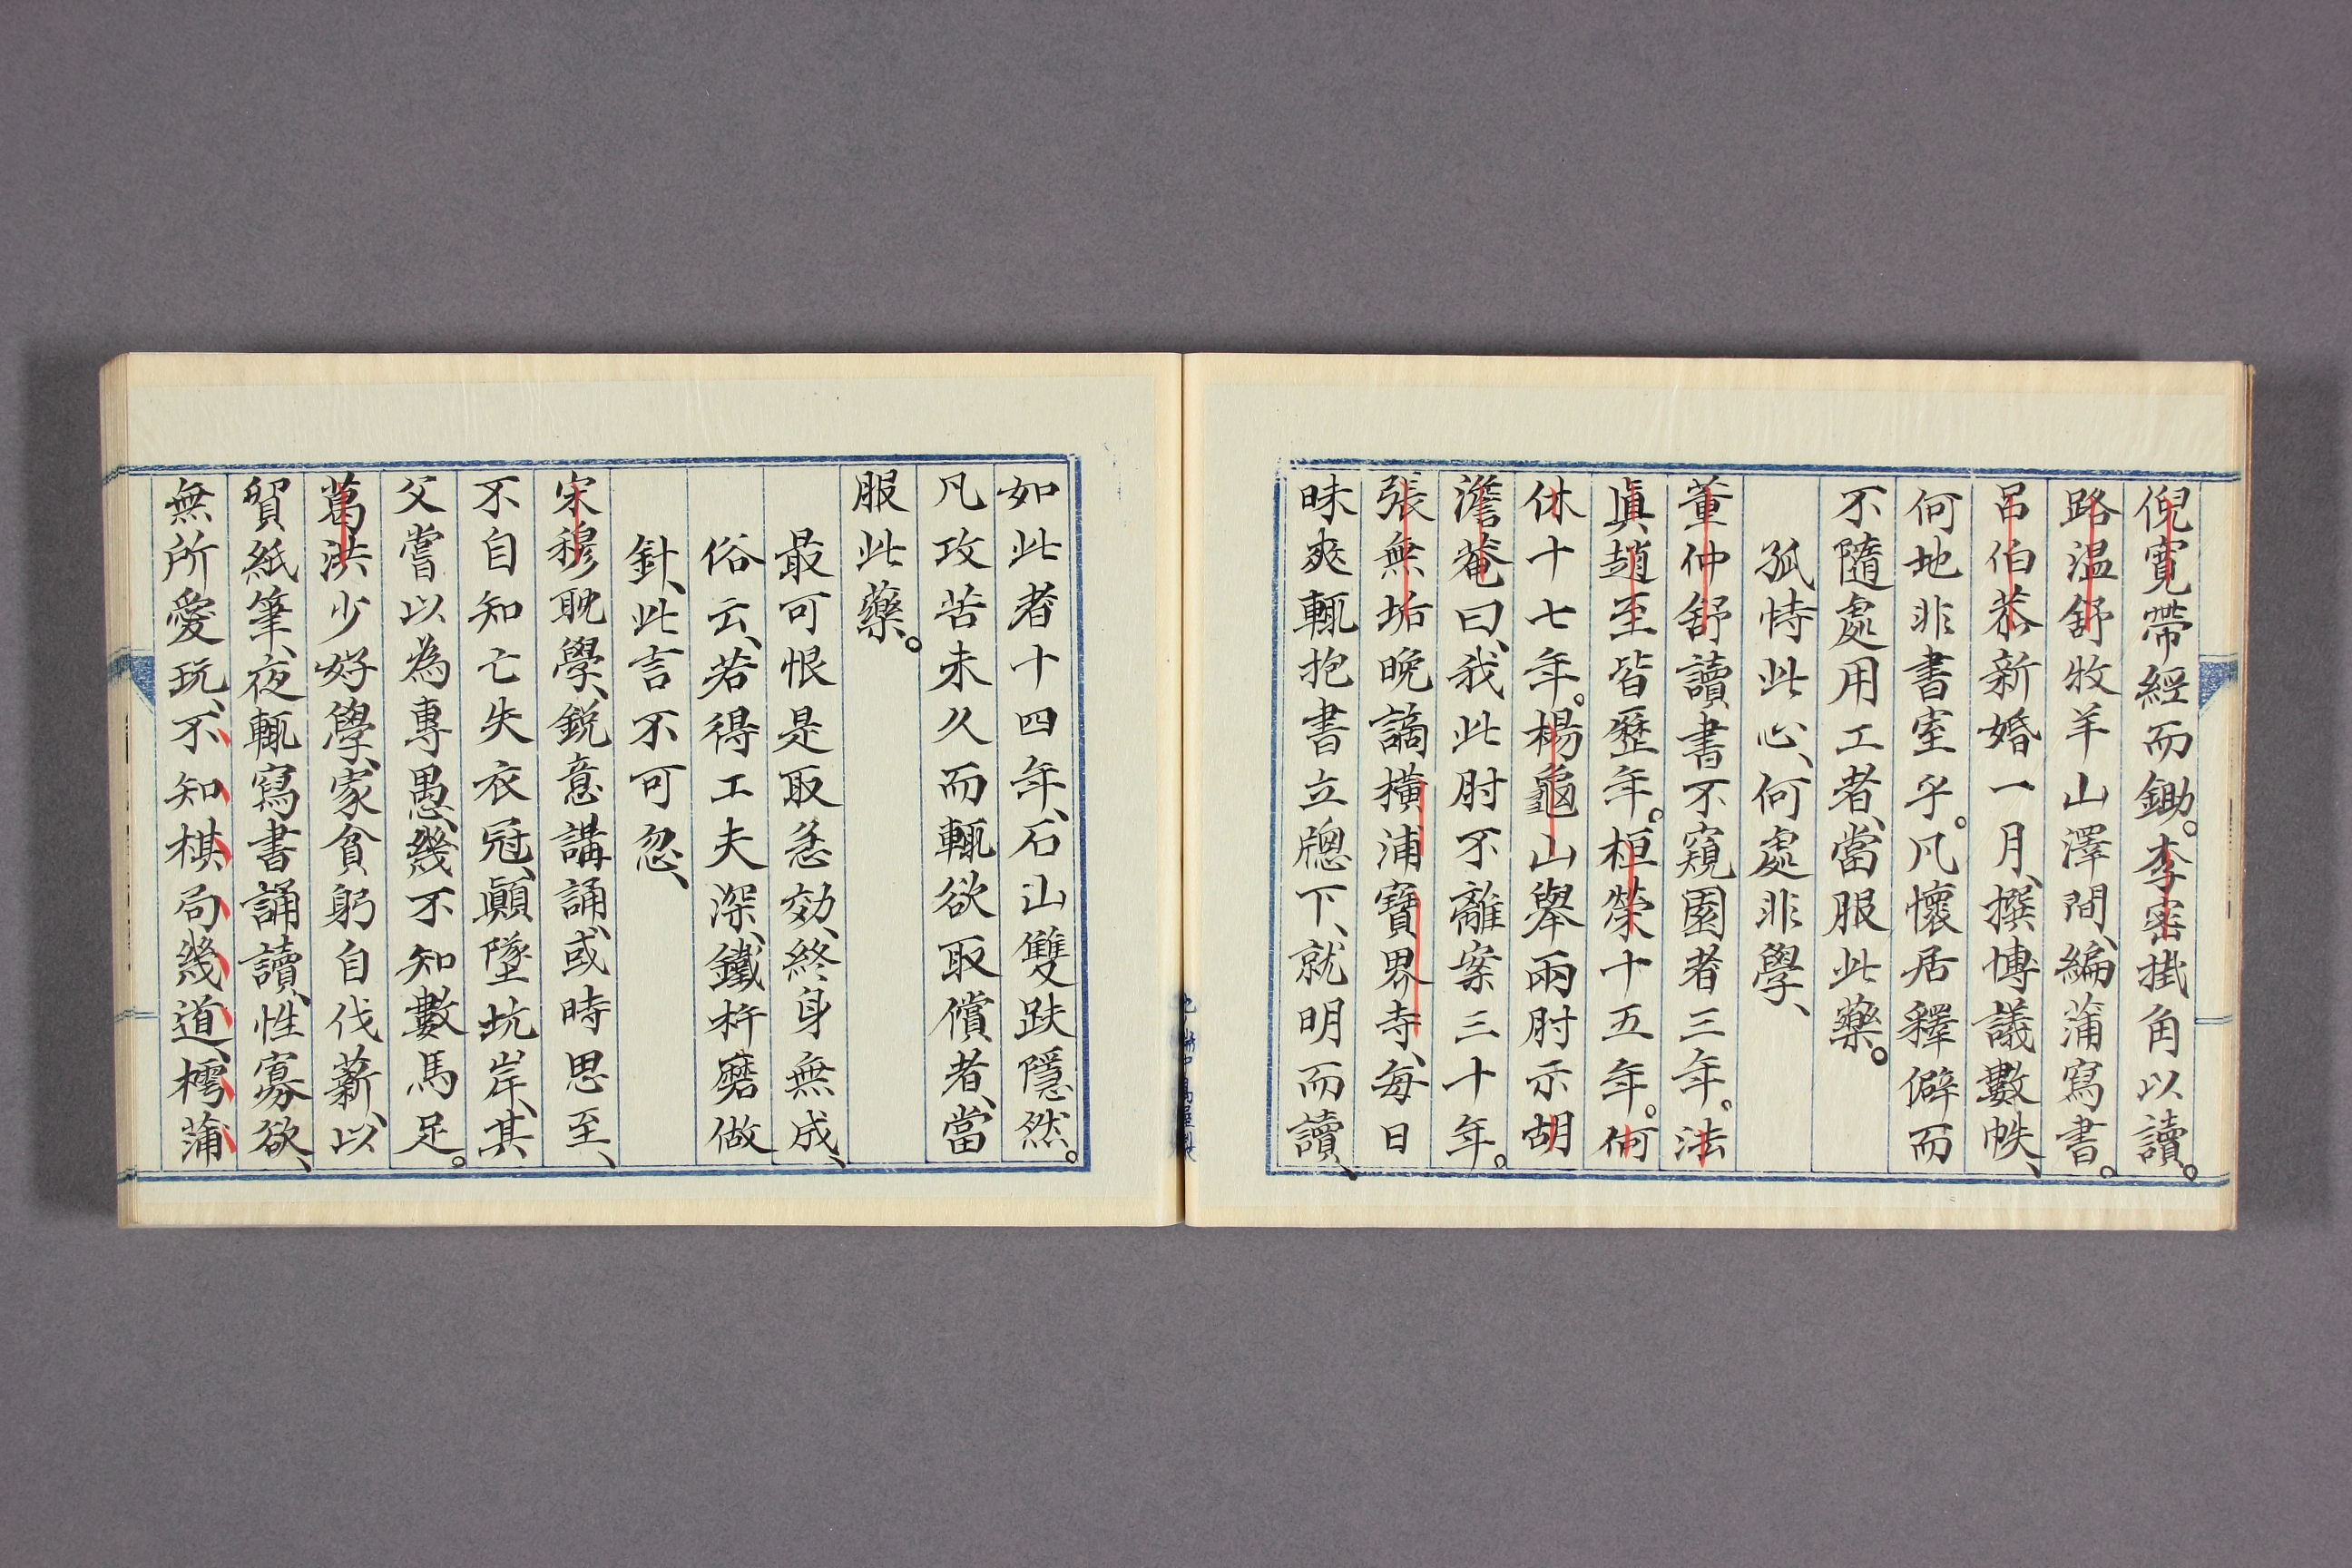 倪寬帶經而鋤。李密掛角以讀。
路温舒牧羊山澤間、編蒲寫書。
呂伯恭新婚一月、撰博議數帙、
何地非書室乎。凡懷居釋僻而
不隨處用工者、當服此藥。
孤恃此心、何處非學、
董仲舒讀書不窺園者三年。法
眞趙至皆歷年。桓榮十五年。何
休十七年。楊龜山舉兩肘示胡
澹菴曰、我此肘不離案三十年。
張無垢晩謫横浦寶界寺、每日
昧爽輒抱書立牕下、就明而讀、
如此者十四年、石山雙趺隱然。
凡攻苦未久而輒欲取償者、當
服此藥。
最可恨是取急効、終身無成、
俗云、若得工夫深、鐵杵磨做
針、此言不可忽、
宋穆耽學、鋭意講誦、或時思至、
不自知亡失衣冠、顚墜坑岸、其
父嘗以為專愚、幾不知數馬足。
葛洪少好學、家貧躬自伐薪、以
貿紙筆、夜輒寫書誦讀、性寡欲、
無所愛玩、不知棋局幾道、樗蒲